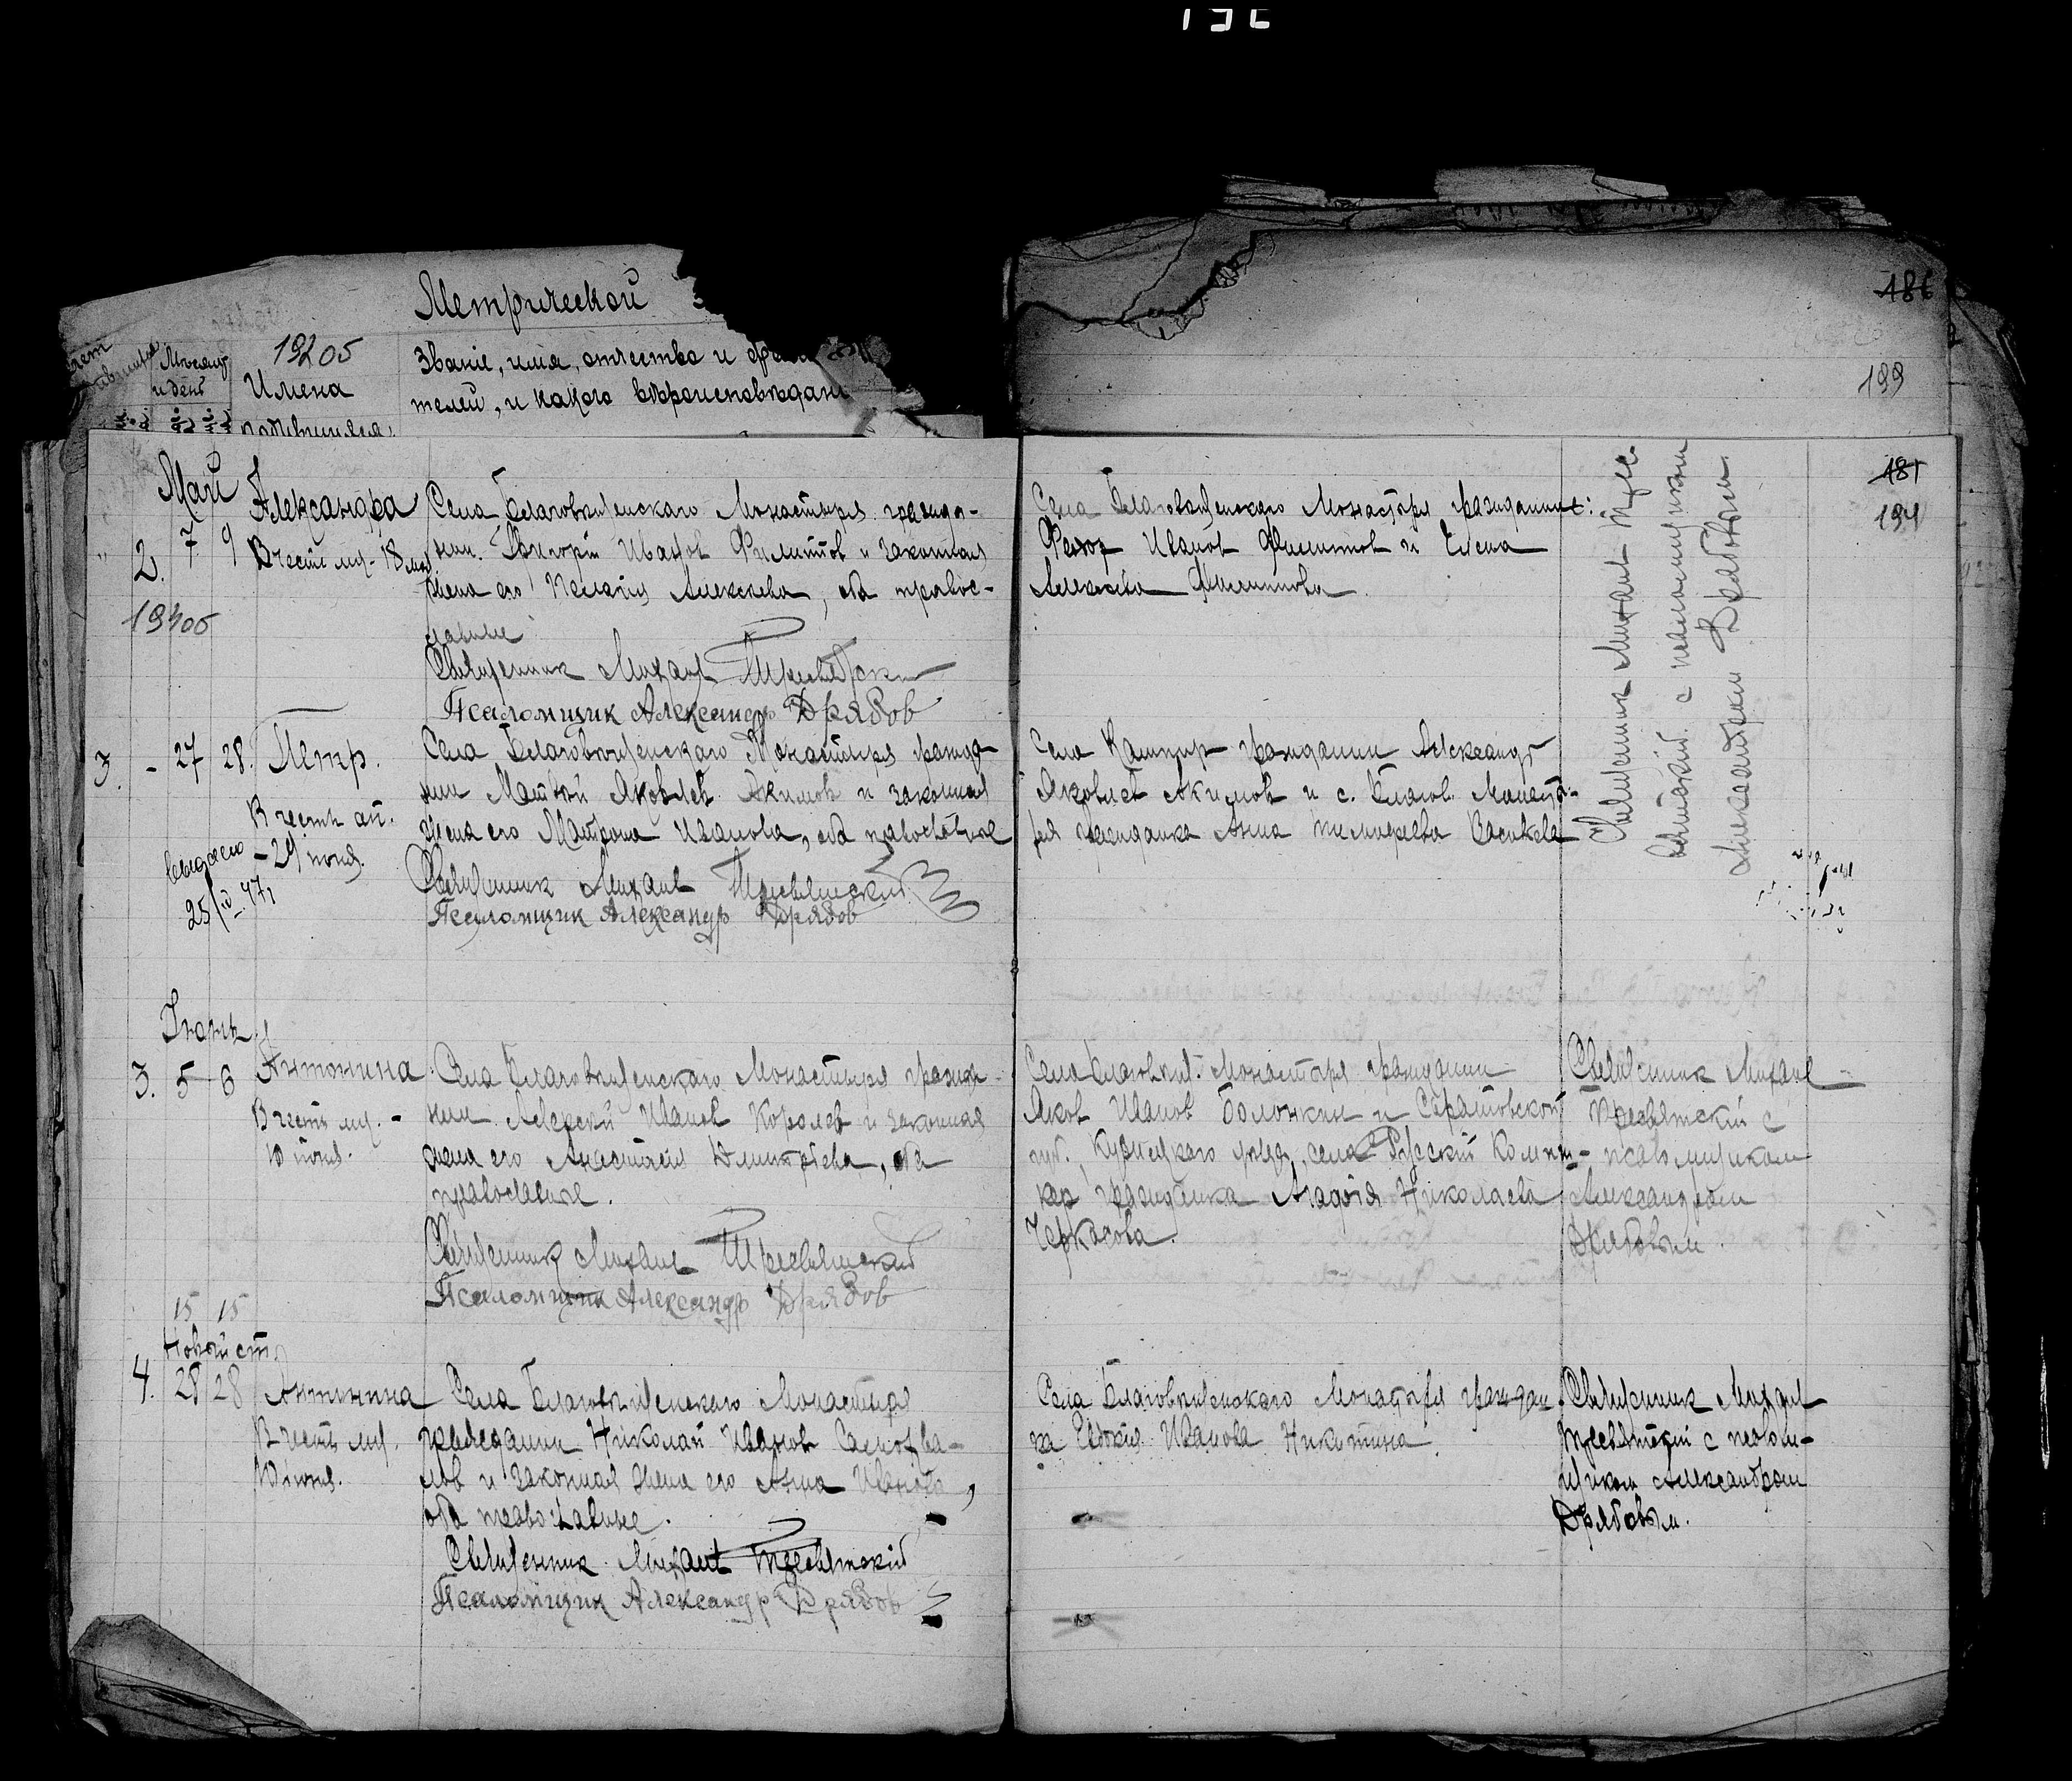 Метрической
19205
Мѣсяц
и день
Имена
родившихся
Званіе, имя, отчество и фам
телей, и какого вѣроисповѣдан
186
199
181
194
Май
2. 7 9
Александра
В честь муч. 18 мая
19405
Села Благовѣщенскаго Монастыря гражда-
нин Григорій Иванов Филиппов и законная
жена его Пелагія Алексѣева, оба правос-
лавные
Священник Михаил Тресвятскій
Псаломщик Александр Дрябов
Села Благовѣщенскаго Монастыря граждане:
Иванов Филиппов и Елена
Алексѣева Филиппова
Священник Михаил Трес-
вятский с псаломщиком
Александром Дрябовым
3. - 27 28.
Петр.
В честь ап.
- 29 іюня.
выдано
25/IV-47
Села Благовѣщенскаго Монастыря гражда-
нин Матвѣй Яковлев Акимов и законная
жена его Матрона Иванова, оба православные
Священник Михаил Тресвятский
Псаломщик Александр Дрябов
Села гражданин Александр
Яковлев Акимов и с. Благов. Монасты-
ря гражданка Анна
Іюнь
3. 5 6
Антонина
В честь муч. -
10 іюня.
Села Благовѣщенскаго Монастыря гражда-
нин Алексѣй Иванов Королев и законная
жена его Анастасія Дмитріева, оба
православные.
Священник Михаил Тресвятский
Псаломщик Александр Дрябов
Села Благовѣщ. Монастыря гражданин
Яков Иванов Болонкин и Саратовской
губ., Кузнецкаго уѣзда, села Русский
гражданка Агафія Николаева
Черкасова.
Священник Михаил
Тресвятский с
псаломщиком
Александром
Дрябовым.
15 15
Новый ст.
4. 28 28
Антонина
В честь муч.
10 іюня.
Села Благовѣщенскаго Монастыря
гражданин Николай Иванов Самохва-
лов и законная жена его Анна Иванова,
оба православные.
Священник Михаил Тресвятский
Псаломщик Александр Дрябов
Села Благовѣщенскаго Монастыря граждан-
ка Евдокія Иванова Никитина.
Священник Михаил
Тресвятский с псалом-
щиком Александром
Дрябовым.